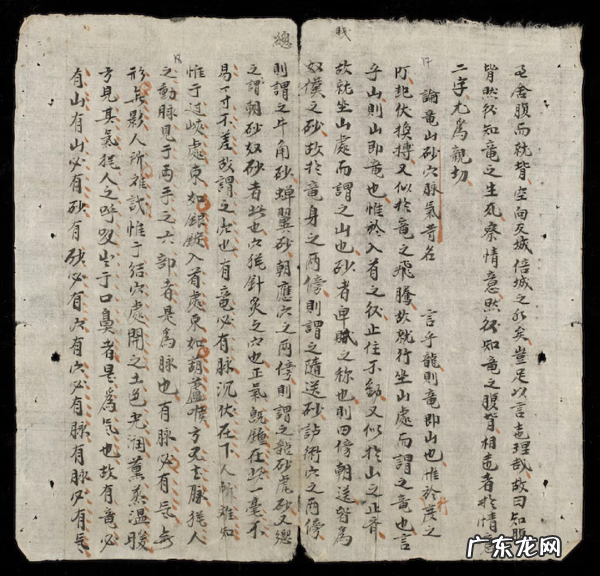 毛舍腹而就背空向反城倍城之水矣豈足以言造理哉故曰知腹
皆然後知竜之生死察情意然後知竜之腹背相造者於情意
二字尤為親切
論竜山砂穴脉氣等名 言乎龍則竜即山也惟於度之
起伏換搏又似於竜之飛騰故就行坐山處而謂之竜也言
乎山則山即竜也惟於入首之後止住不動又似於山之止音
故就坐山處而謂之山也砂者卑賤之称也則四傍朝送皆為
奴僕之砂故於竜身之兩傍則謂之隨送砂訪術穴之兩傍
則謂之牛角砂蟬翼砂朝應穴之兩傍則謂之龍砂虎砂又總
之謂朝砂奴砂者此也穴猶針灸之穴也正氣既鍾在此一毫不
易一寸不差故謂之穴也有竜必有脉沉伏在下人所难知
惟于过峡處束如銀錠入首處束如葫蘆喉方見去脉猶人
之動脉見于両手之六部者是為脉也有脉必有氣氣
形占影人所难試惟于結穴處開之土色光潤薰蒸温暖
方見其氣猶人之呼吸出于口鼻者是為气也故有竜必
有山有山必有砂有砂必有穴有穴必有脉有脉必有氣
總
賤
广东龙网